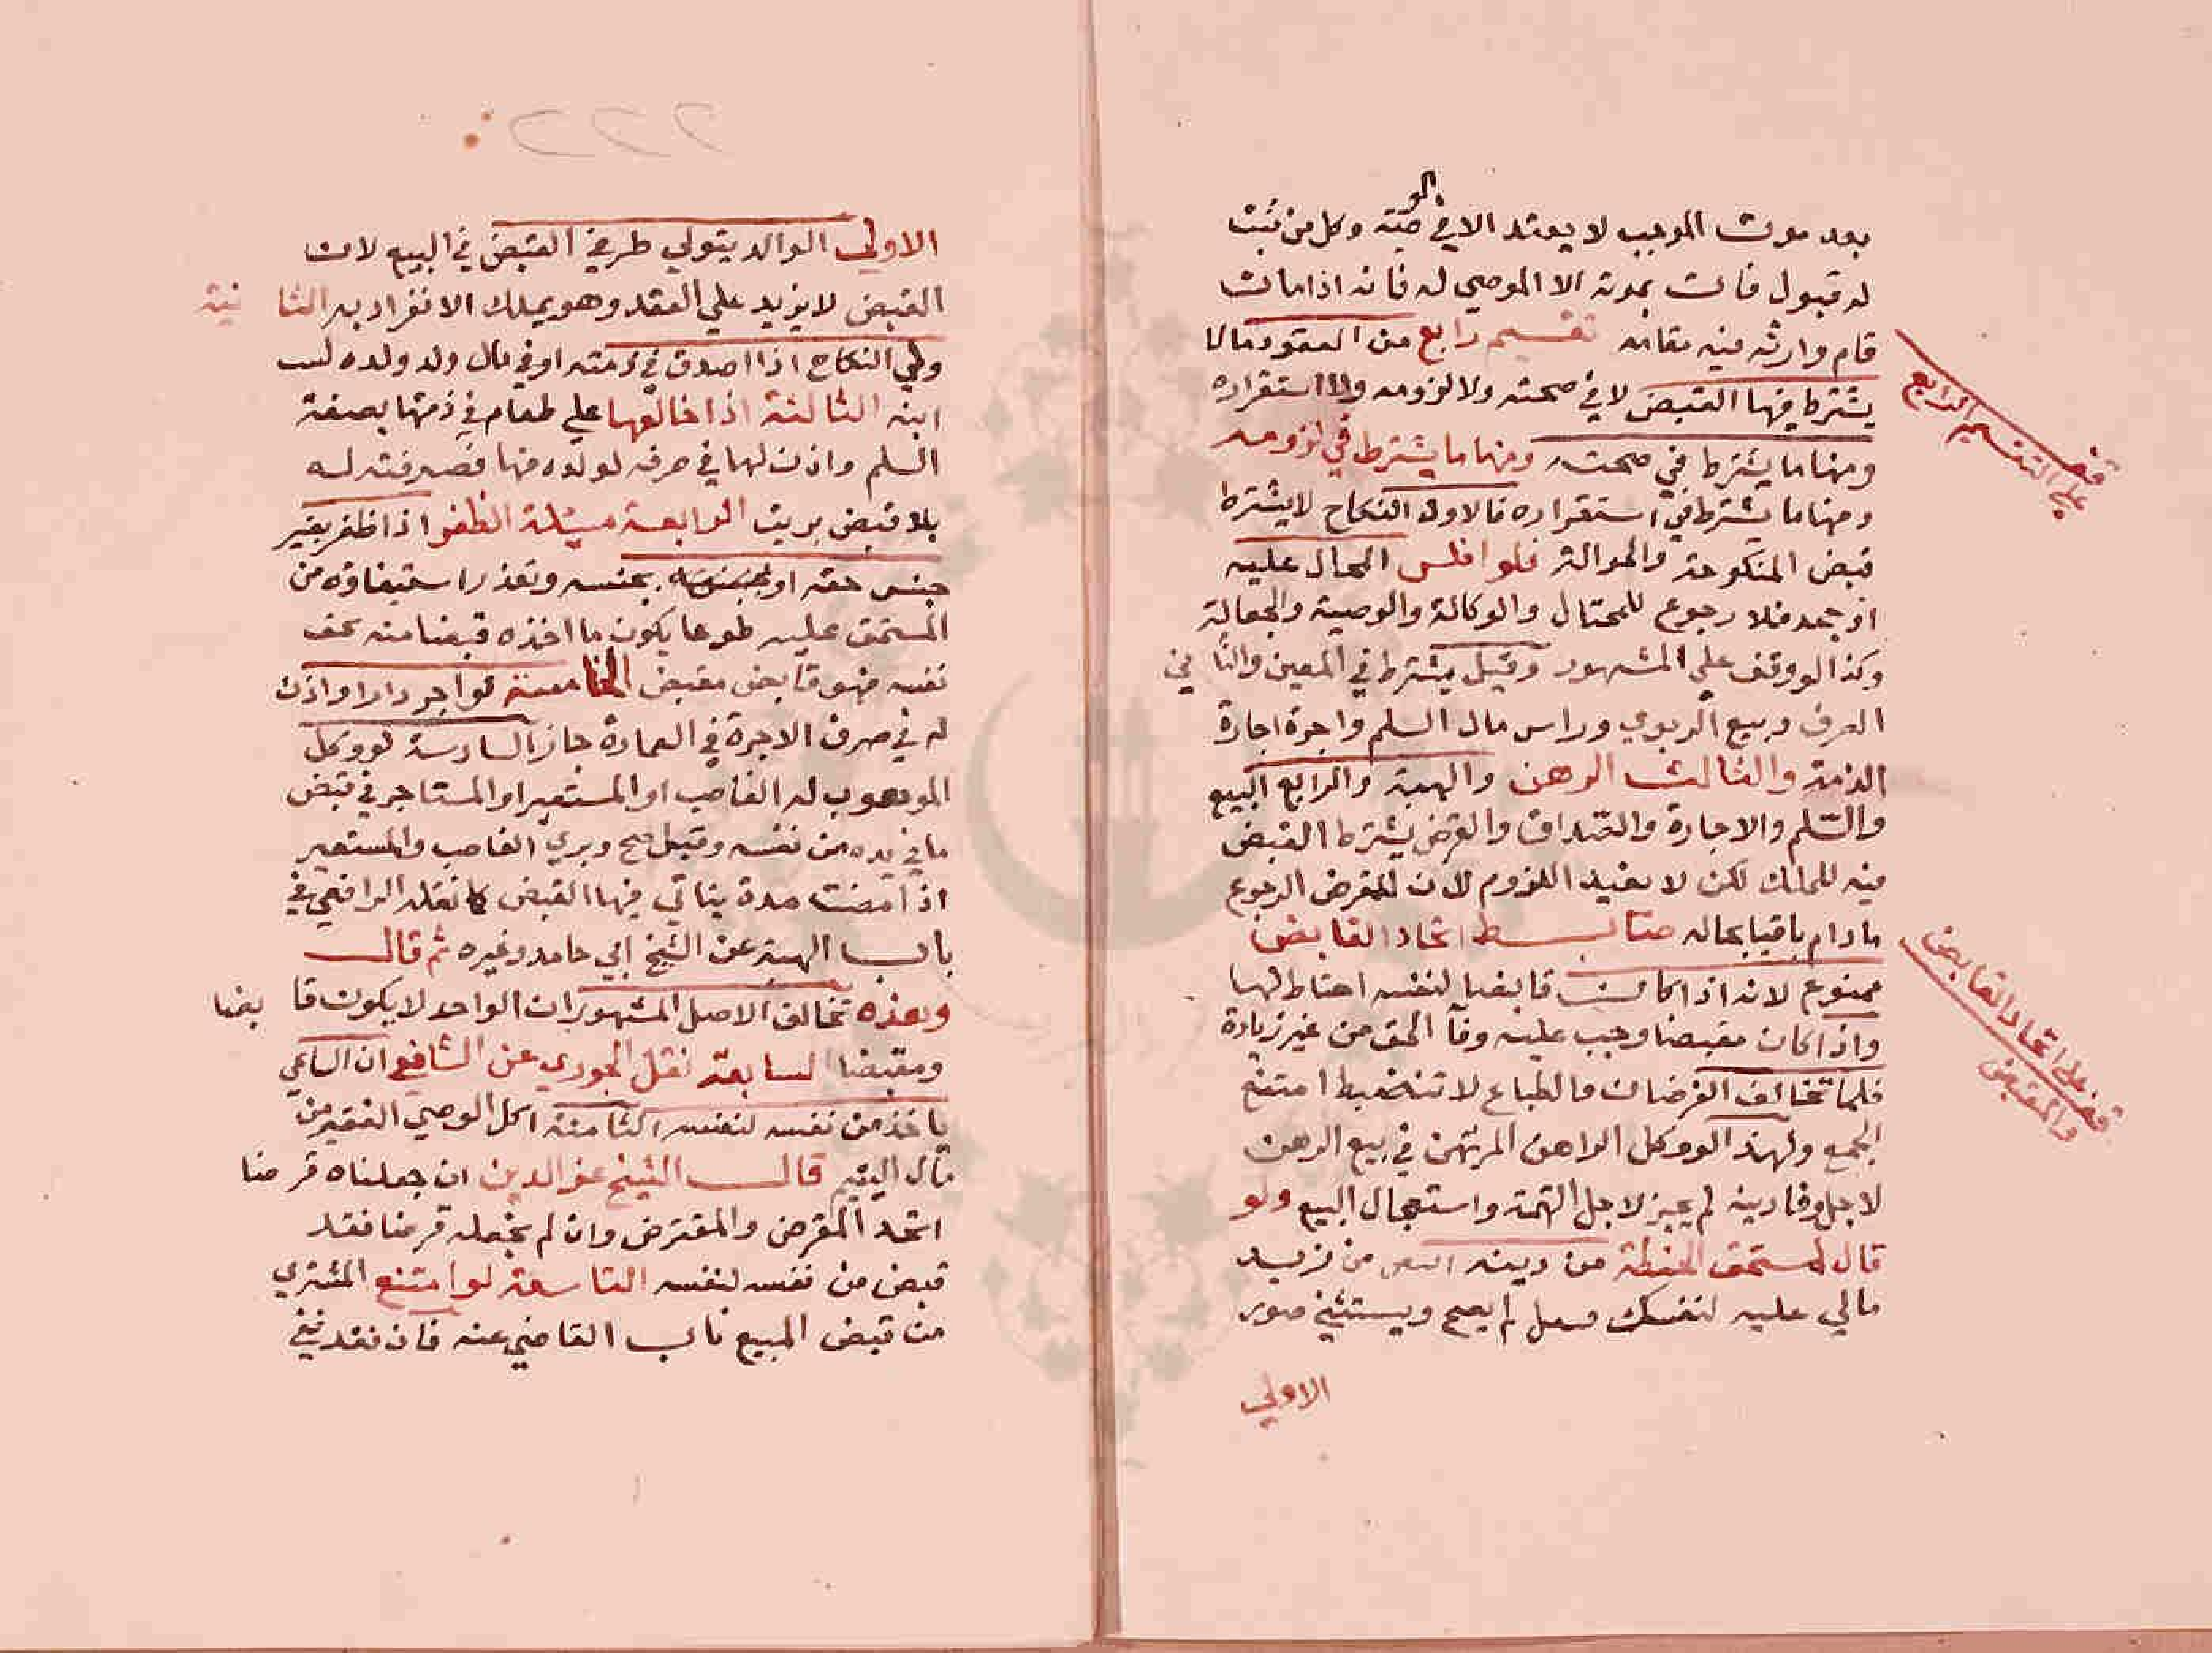 بعد موت الموجب لا يعتد الا في الوصية وكل من ثبت
له قبول فات بموته الا الموصى له فانه اذا مات
قام وارثه فيه مقامه تقسيم رابع من العقود ما لا
يشترط فيها القبض لا في صحته ولا لزومه ولا استقراره
ومنها ما يشترط في صحته ومنها ما يشترط في لزومه
ومنها ما يشترط في استقراره فالاول النكاح لا يشترط
قبض المنكوحة والحوالة فلو افلس المحال عليه
او جحد فلا رجوع للمحتال والوكالة والوصية والجعالة
وكذا الوقف علي المشهور وقيل يشترط في المعين والثاني
الصرف وبيع الربوي وراس مال السلم واجرة اجارة
الذمة والثالث الرهن والهبة والرابع البيع
والسلم والاجارة والصداق والقرض يشترط القبض
فيه للملك لكن لا يفيد اللزوم لان للمقرض الرجوع
ما دام باقيا بحاله ضابط اتحاد القابض
ممنوع لانه اذا كان قابضا لنفسه احتاط لها
واذا كان مقبضا وجب عليه وفآ الحق من غير زيادة
فلما تخالف الغرضان والطباع لا تنضبط امتنع
الجمع ولهذا لو وكل الراهن المرتهن في بيع الرهن
لاجل وفا دينه لم يجز لاجل التهمة واستعجال البيع ولو
قال لمستحق الحنطة من دينه اقبض من زيد
مالي عليه لنفسك ففعل لم يصح ويستثني صور
الاولي
قف علي التقسيم الرابع
قف علي اتحاد القابض
والمقبض
٢٢٢
الاولي الوالد يتولي طرفي القبض في البيع لان
القبض لا يزيد علي العقد وهو يملك الانفراد به الثانية
ولي النكاح اذا اصدق في ذمته او في مال ولد ولده لبنت
ابنه الثالثة اذا خالعها علي طعام في ذمتها بصفة
السلم واذن لها في صرفه لولده منها فصرفته له
بلا قبض بريت الرابعة مسئلة الظفر اذا ظفر بغير
جنس حقه او بجنسه وتعذر استيفاؤه من
المستحق عليه طوعا يكون ما اخذه قبضا منه بحق
نفسه فهو قابض مقبض الخامسة لو اجر دارا واذن
له في صرف الاجرة في العمارة جاز السادسة لو وكل
الموهوب له الغاصب او المستعير او المستاجر في قبض
ما في يده من نفسه وقبل صح وبري الغاصب والمستعير
اذا مضت مدة يتاتي فيها القبض كما نقله الرافعي في
باب الهبة عن الشيخ ابي حامد وغيره ثم قال
وهذه تخالف الاصل المشهور ان الواحد لا يكون قابضا
ومقبضا السابعة نقل الجوري عن الشافعي ان الساعي
ياخذ من نفسه لنفسه الثامنة اكل الوصي الفقير من
مال اليتيم قال الشيخ عز الدين ان جعلناه قرضا
اتحد المقرض والمقترض وان لم نجعله قرضا فقد
قبض من نفسه لنفسه التاسعة لو امتنع المشتري
من قبض المبيع ناب القاضي عنه فان فقد ففي